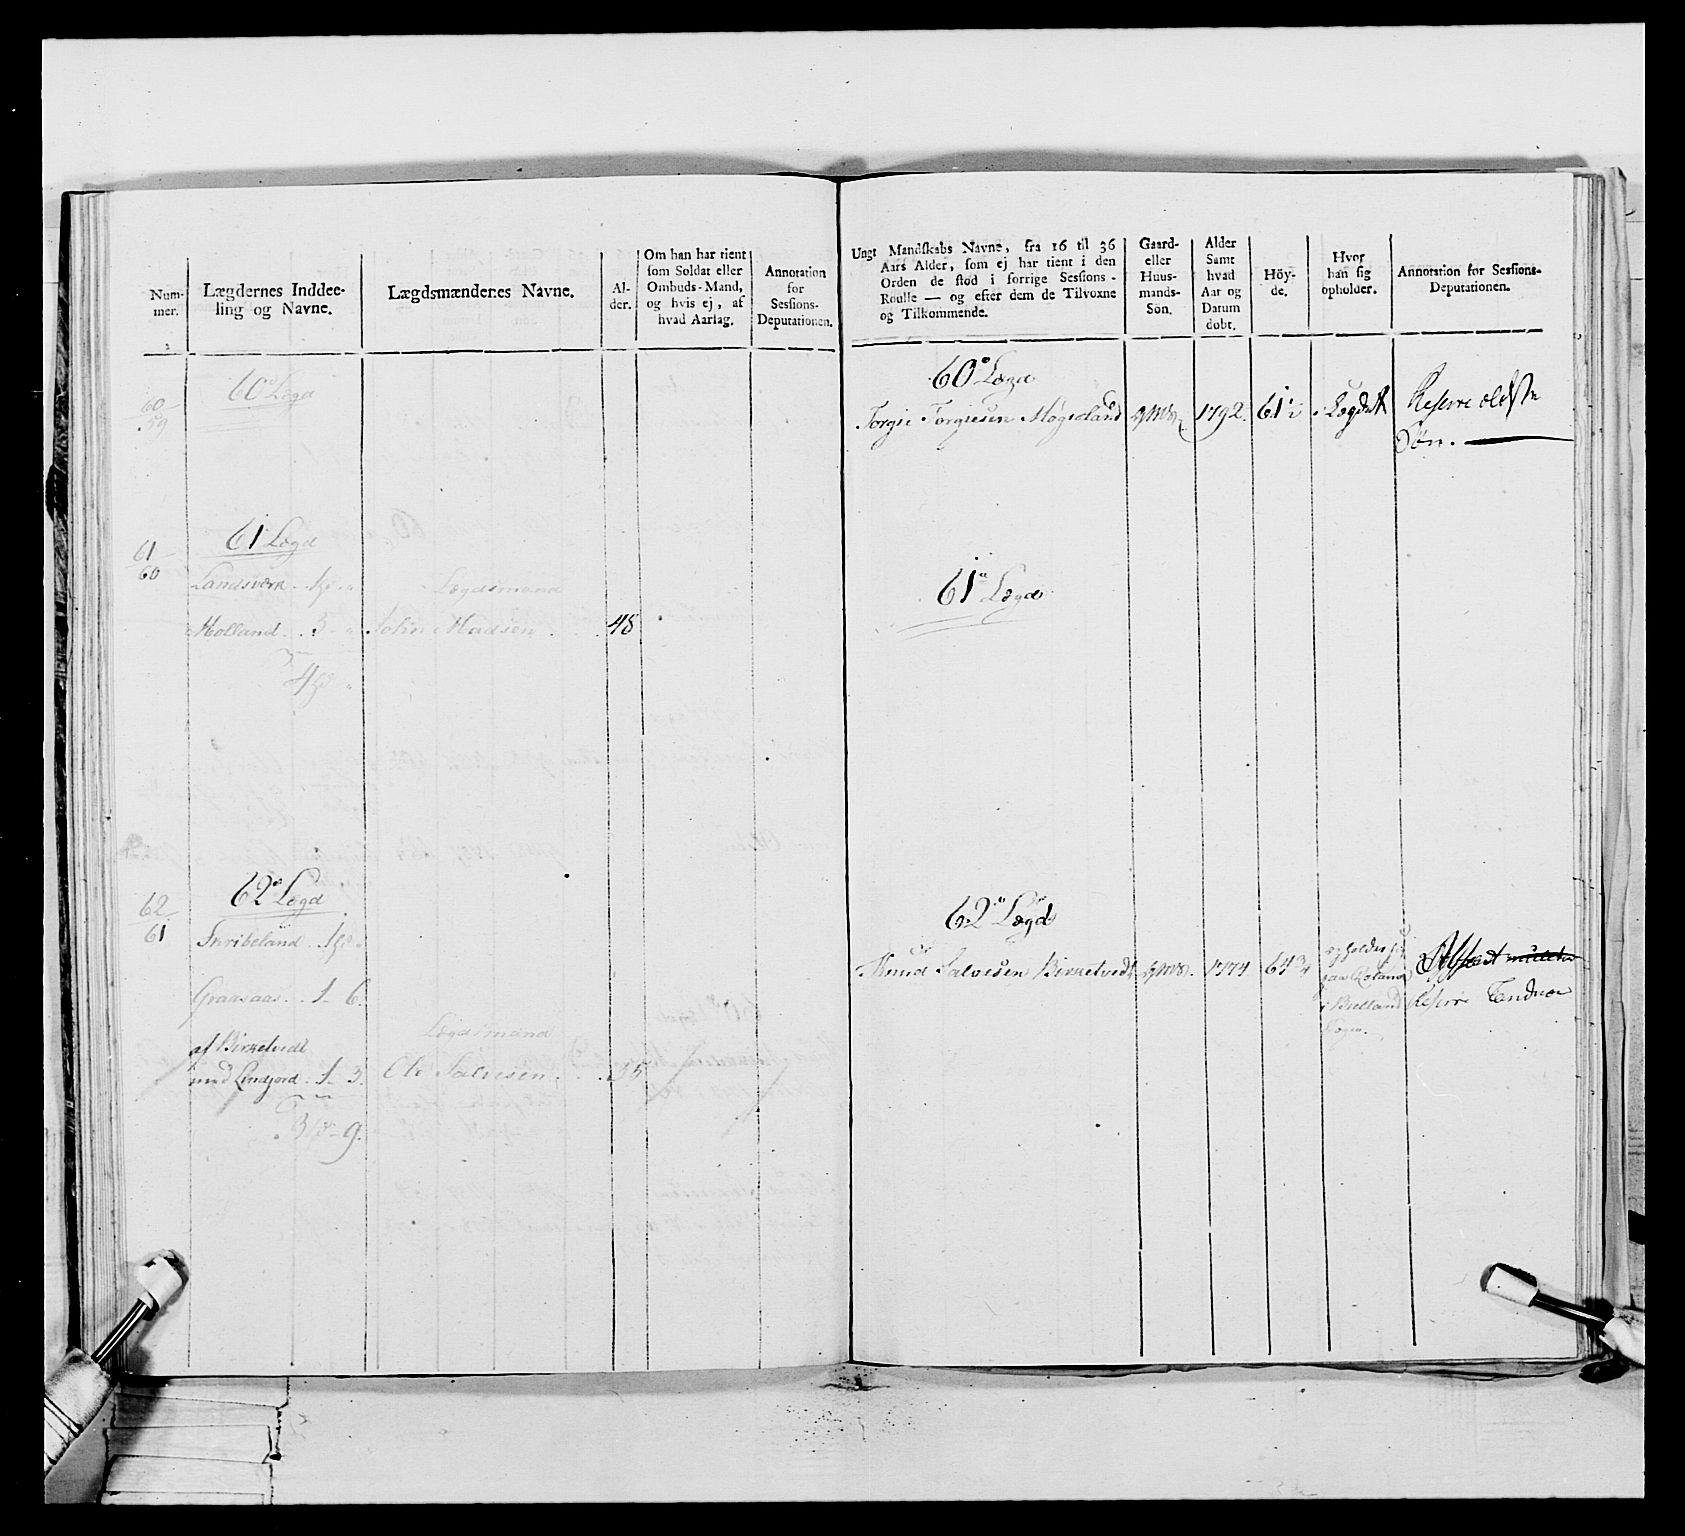 Num-
mer.
Lægdernes Inddee-
ling og Navne.
Lægdsmændenes Navne.
Al-
der.
Om han har tient
som Soldat eller
Ombuds-Mand,
og hvis ej, af
hvad Aarsag.
Annotation
for
Sessions-
Deputationen.
60
59
60 Lægd
61
60
61 Lægd
Landsværk
Lægdsmand
Holland. 3
John Madsen
48
4
62
61
62 Lægd
Skribeland
Graasaas. 1 - 6.
af Birketvedt
Lægdsmand
med Lindjord. 1 - 3.
Ole Salvesen
35
3 - 9.
Ungt Mandskabs Navne, fra 16 til 36
Aars Alder, som ej har tient i den
Orden de stod i forrige Sessions-
Roulle — og efter dem de Tilvoxne
og Tilkommende.
Gaard-
eller
Huus-
mands-
Sön.
Alder
Samt
hvad
Aar og
Datum
döbt.
Höy-
de.
Hvor
han sig
opholder.
Annotation for Sessions-
Deputationen.
60 Lægd
Torgie Torgiesen Høgeland
1792.
61½
i Lægdet
Reserve ældste
Søn.
61 Lægd
62 Lægd
Knud Salvesen Birketvedt
1774
64¾
opholder sig
i Bielland
Sogn.
Reserve